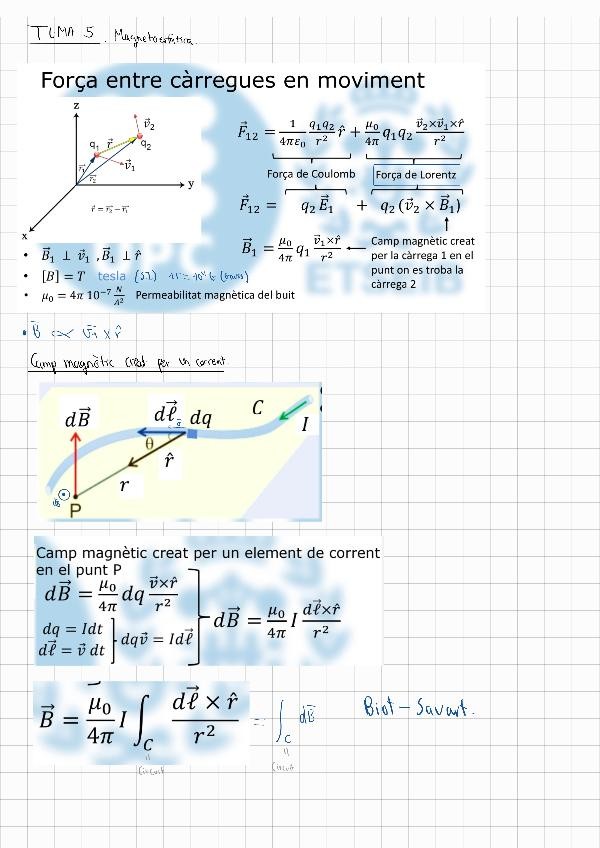 TEMA 5. Magnetoestàtica.
Força entre càrregues en moviment
z
v⃗₂
q₁ r⃗ q₂
v⃗₁
r⃗₁
r⃗₂
y
r⃗ = r⃗₂ − r⃗₁
x
F⃗₁₂ = 1/4πε₀ q₁q₂/r² r̂ + μ₀/4π q₁q₂ v⃗₂×v⃗₁×r̂/r²
Força de Coulomb Força de Lorentz
F⃗₁₂ = q₂ E⃗₁ + q₂ (v⃗₂ × B⃗₁)
B⃗₁ = μ₀/4π q₁ v⃗₁×r̂/r²
Camp magnètic creat
per la càrrega 1 en el
punt on es troba la
càrrega 2
• B⃗₁ ⊥ v⃗₁ , B⃗₁ ⊥ r̂
• [B] = T tesla (SI) 1T = 10⁴ G (Gauss)
• μ₀ = 4π 10⁻⁷ N/A² Permeabilitat magnètica del buit
UPC
ETSEIB
• B⃗ ∝ v⃗₁ × r̂
Camp magnètic creat per un corrent.
dB⃗ dℓ⃗ dq C I
θ
r̂
r
P
Camp magnètic creat per un element de corrent
en el punt P
dB⃗ = μ₀/4π dq v⃗×r̂/r²
dq = Idt
dℓ⃗ = v⃗ dt
dqv⃗ = Idℓ⃗
dB⃗ = μ₀/4π I dℓ⃗×r̂/r²
B⃗ = μ₀/4π I ∫_C dℓ⃗ × r̂/r² = ∫_C dB⃗ Biot – Savart.
Circuit Circuit